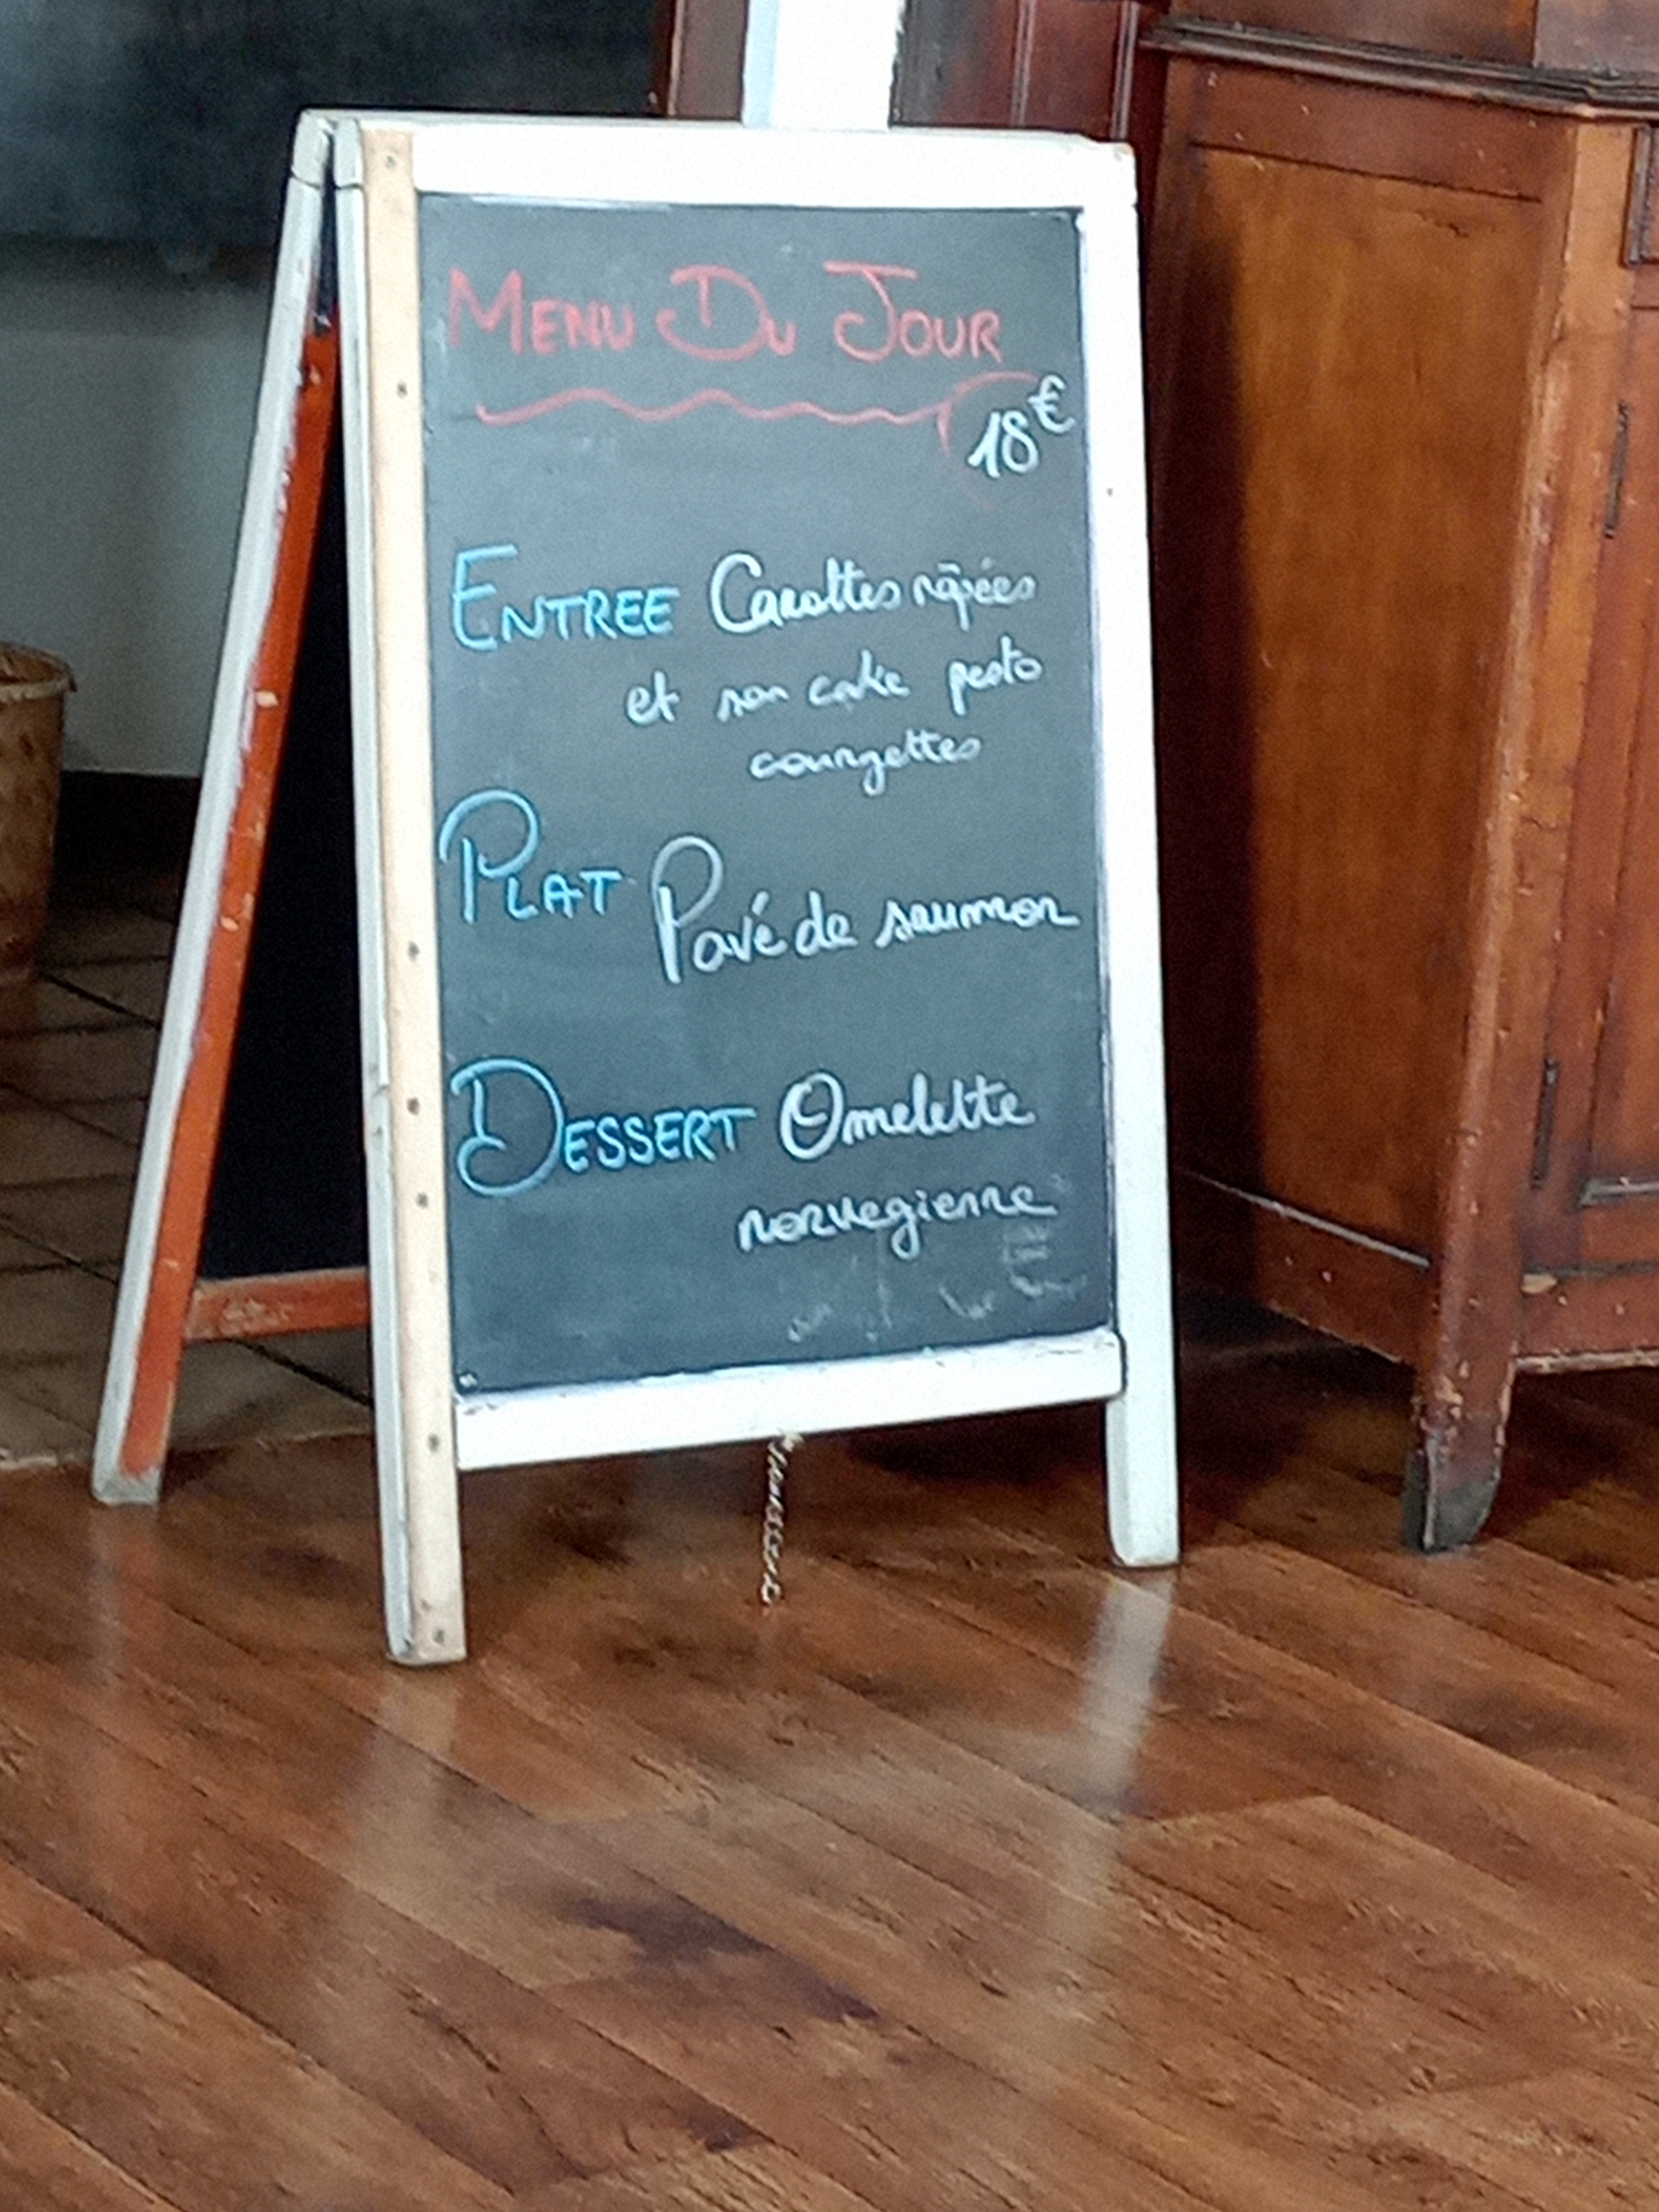 MENU DU JOUR
18€
ENTREE Carottes râpées
et son cake pesto
courgettes
PLAT Pavé de saumon
DESSERT Omelette
norvegienne